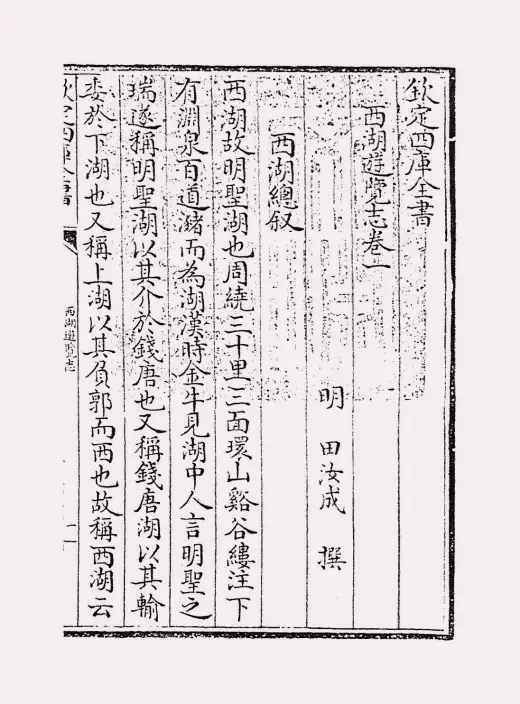 欽定四庫全書
西湖遊覽志卷一
明 田汝成 撰
西湖總叙
西湖故明聖湖也周繞三十里三面環山谿谷縷注下
有淵泉百道瀦而為湖漢時金牛見湖中人言明聖之
瑞遂稱明聖湖以其介於錢唐也又稱錢唐湖以其輸
委於下湖也又稱上湖以其負郭而西也故稱西湖云
欽定四庫全書
西湖遊覽志
一